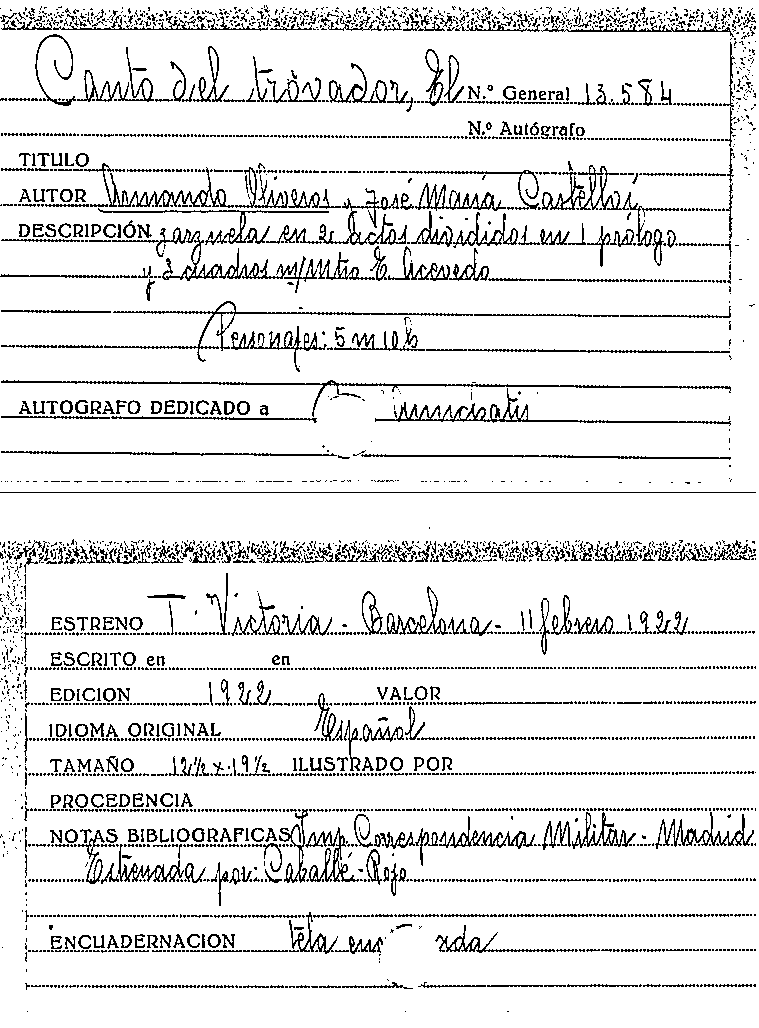 Canto del trovador, El N.º General 13.584
N.º Autógrafo
TITULO
AUTOR Armando Oliveros y José María Castellví
DESCRIPCIÓN zarzuela en 2 actos divididos en 1 prólogo
y 3 cuadros m/Mtro E. Acevedo
Personajes: 5 m 10 h
AUTOGRAFO DEDICADO a
ESTRENO T. Victoria - Barcelona - 11 febrero 1922
ESCRITO en en
EDICION 1922 VALOR
IDIOMA ORIGINAL Español
TAMAÑO 12½ x 19½ ILUSTRADO POR
PROCEDENCIA
NOTAS BIBLIOGRAFICAS Imp. Correspondencia Militar - Madrid
Estrenada por: Caballé-Rojo
ENCUADERNACION tela